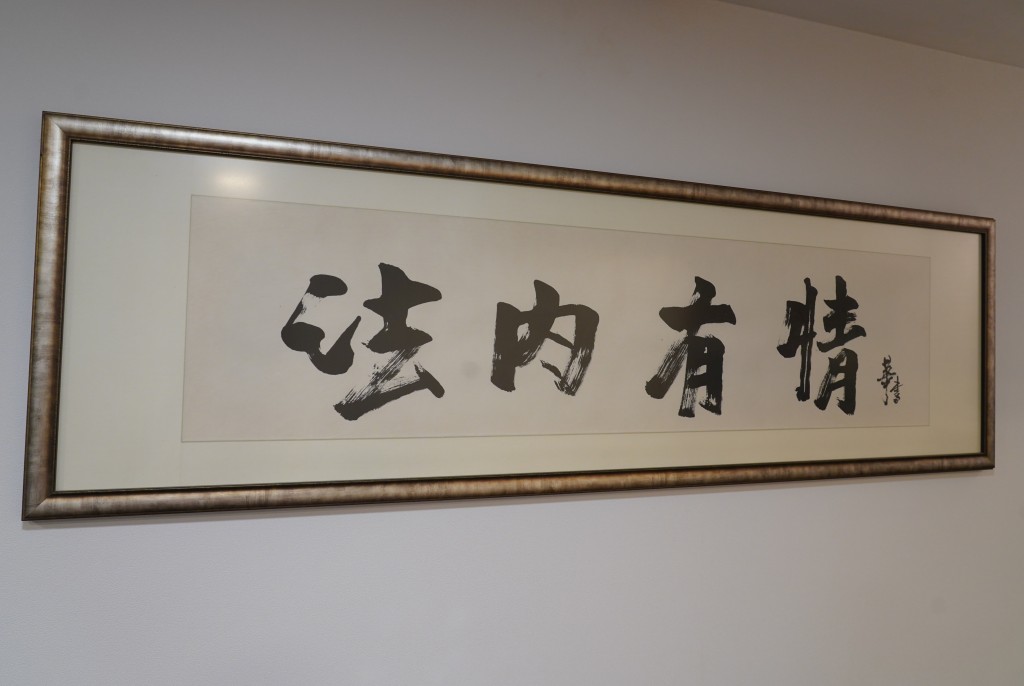 法内有情